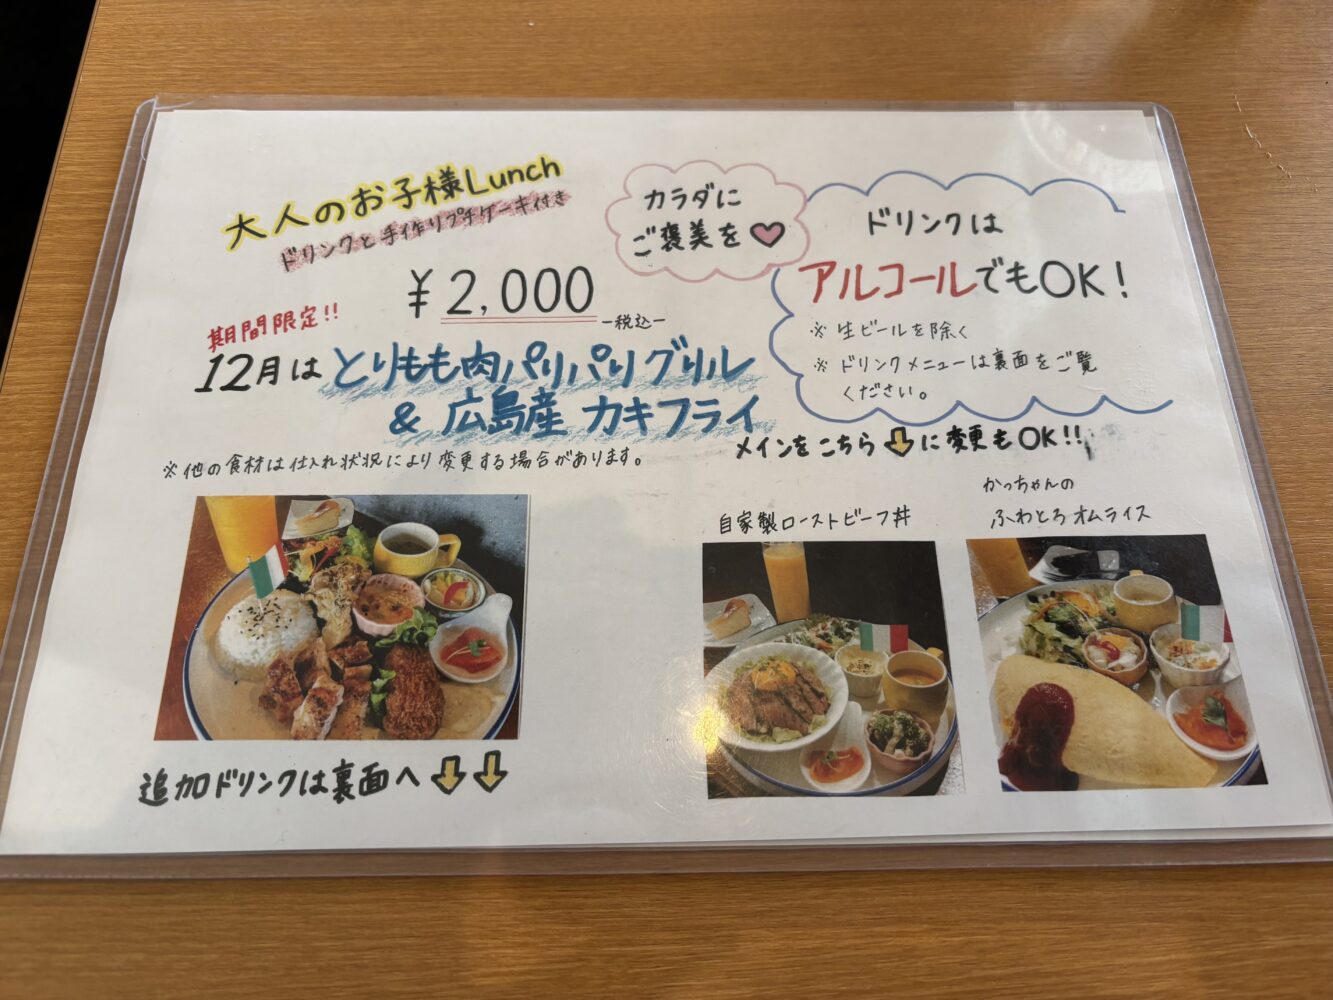 大人のお子様Lunch
ドリンクと手作りプチケーキ付き
¥2,000
-税込-
カラダに
ご褒美を
ドリンクは
アルコールでもOK!
※ 生ビールを除く
※ ドリンクメニューは裏面をご覧
ください。
期間限定!!
12月は とりもも肉パリパリグリル
& 広島産 カキフライ
※他の食材は仕入れ状況により変更する場合があります。
メインをこちら⇩に変更もOK!!
自家製ローストビーフ丼
かっちゃんの
ふわとろオムライス
追加ドリンクは裏面へ⇩⇩